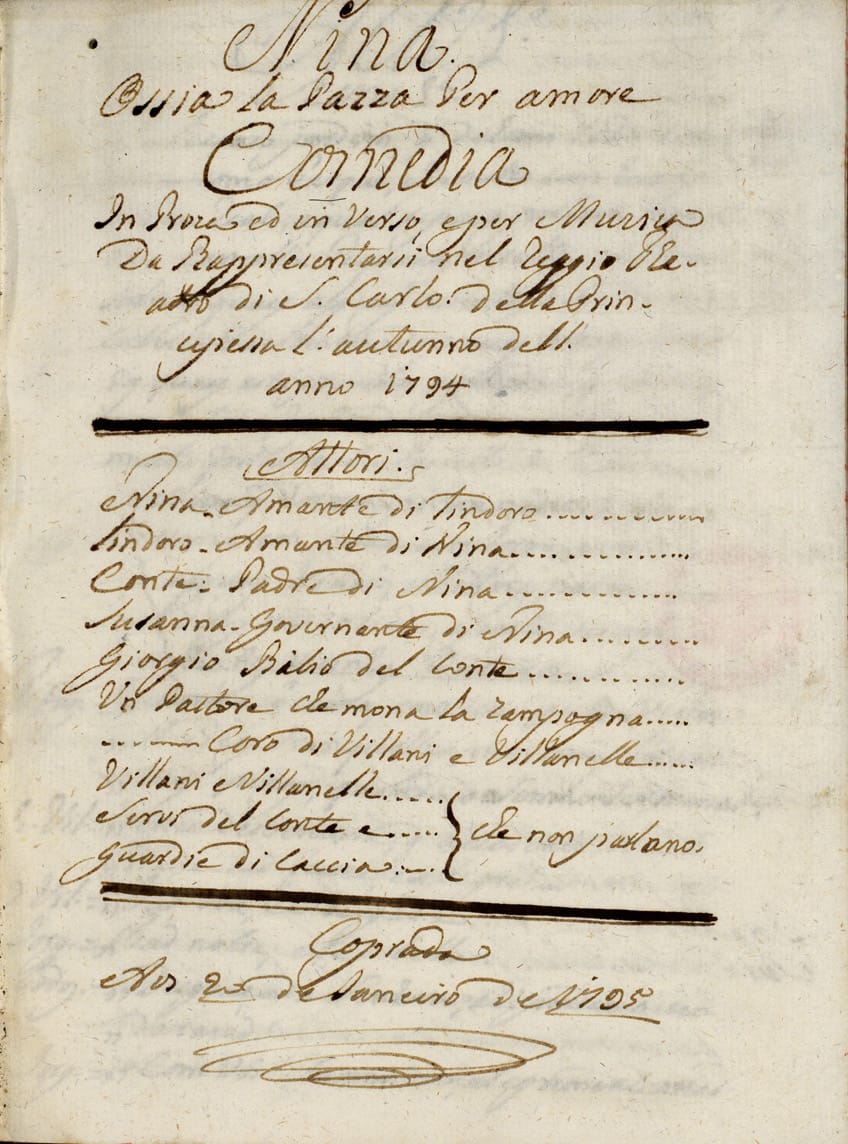 Nina.
Ossia la Pazza Per amore
Comedia
In Proza ed in Verso, e per Muzica
Da Rappresentarsi nel Reggio Te-
atro di S. Carlo. della Prin-
cipessa l'autunno dell.
anno 1794
Attori.
Nina. Amante di Lindoro............
Lindoro. Amante di Nina...............
Conte. Padre di Nina..............
Susanna. Governante di Nina..........
Giorgio Balio del Conte.............
Un Pastore che mona la Zampogna.....
......... Coro di Villani e Villanelle......
Villani e Villanelle......
Servi del Conte e......
Guardie di Caccia.... } che non parlano.
Coprada
Aos 2 de Janeiro de 1795